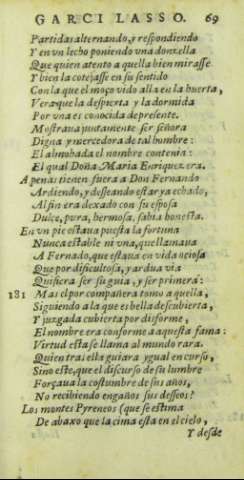 GARCI LASSO. 69
Partidas alternando, y respondiendo
Y en vn lecho poniendo vna donzella
Que quien atento a quella bien mirasse
Y bien la cotejasse en su sentido
Con la que el moço vido alla en la huerta,
Vera que la despierta y la dormida
Por vna es conocida de presente.
Mostraua juntamente ser señora
Digna y merecedora de tal hombre:
El almohada el nombre contenia:
El qual Doña Maria Enriquez era.
A penas tienen fuera a Don Fernando
Ardiendo, y desseando estar ya echado,
Al fin era dexado con su esposa
Dulçe, pura, hermosa, sabia honesta.
En vn pie estaua puesta la fortuna
Nunca estable ni vna, que llamaua
A Fernado, que estaua en vida ociosa
Que por dificultosa, y ardua via
Quisiera ser su guia, y ser primera:
181 Mas el por compañera tomo a quella,
Siguiendo a la que es bella descubierta,
Y juzgada cubierta por disforme,
El nombre era conforme a aquesta fama:
Virtud esta se llama al mundo rara.
Quien tras ella guiara ygual en curso,
Sino este, que el discurso de su lumbre
Forçaua la costumbre de sus años,
No recibiendo engaños sus desseos?
Los montes Pyreneos (que se estima
De abaxo que la cima esta en el cielo,
Y desde